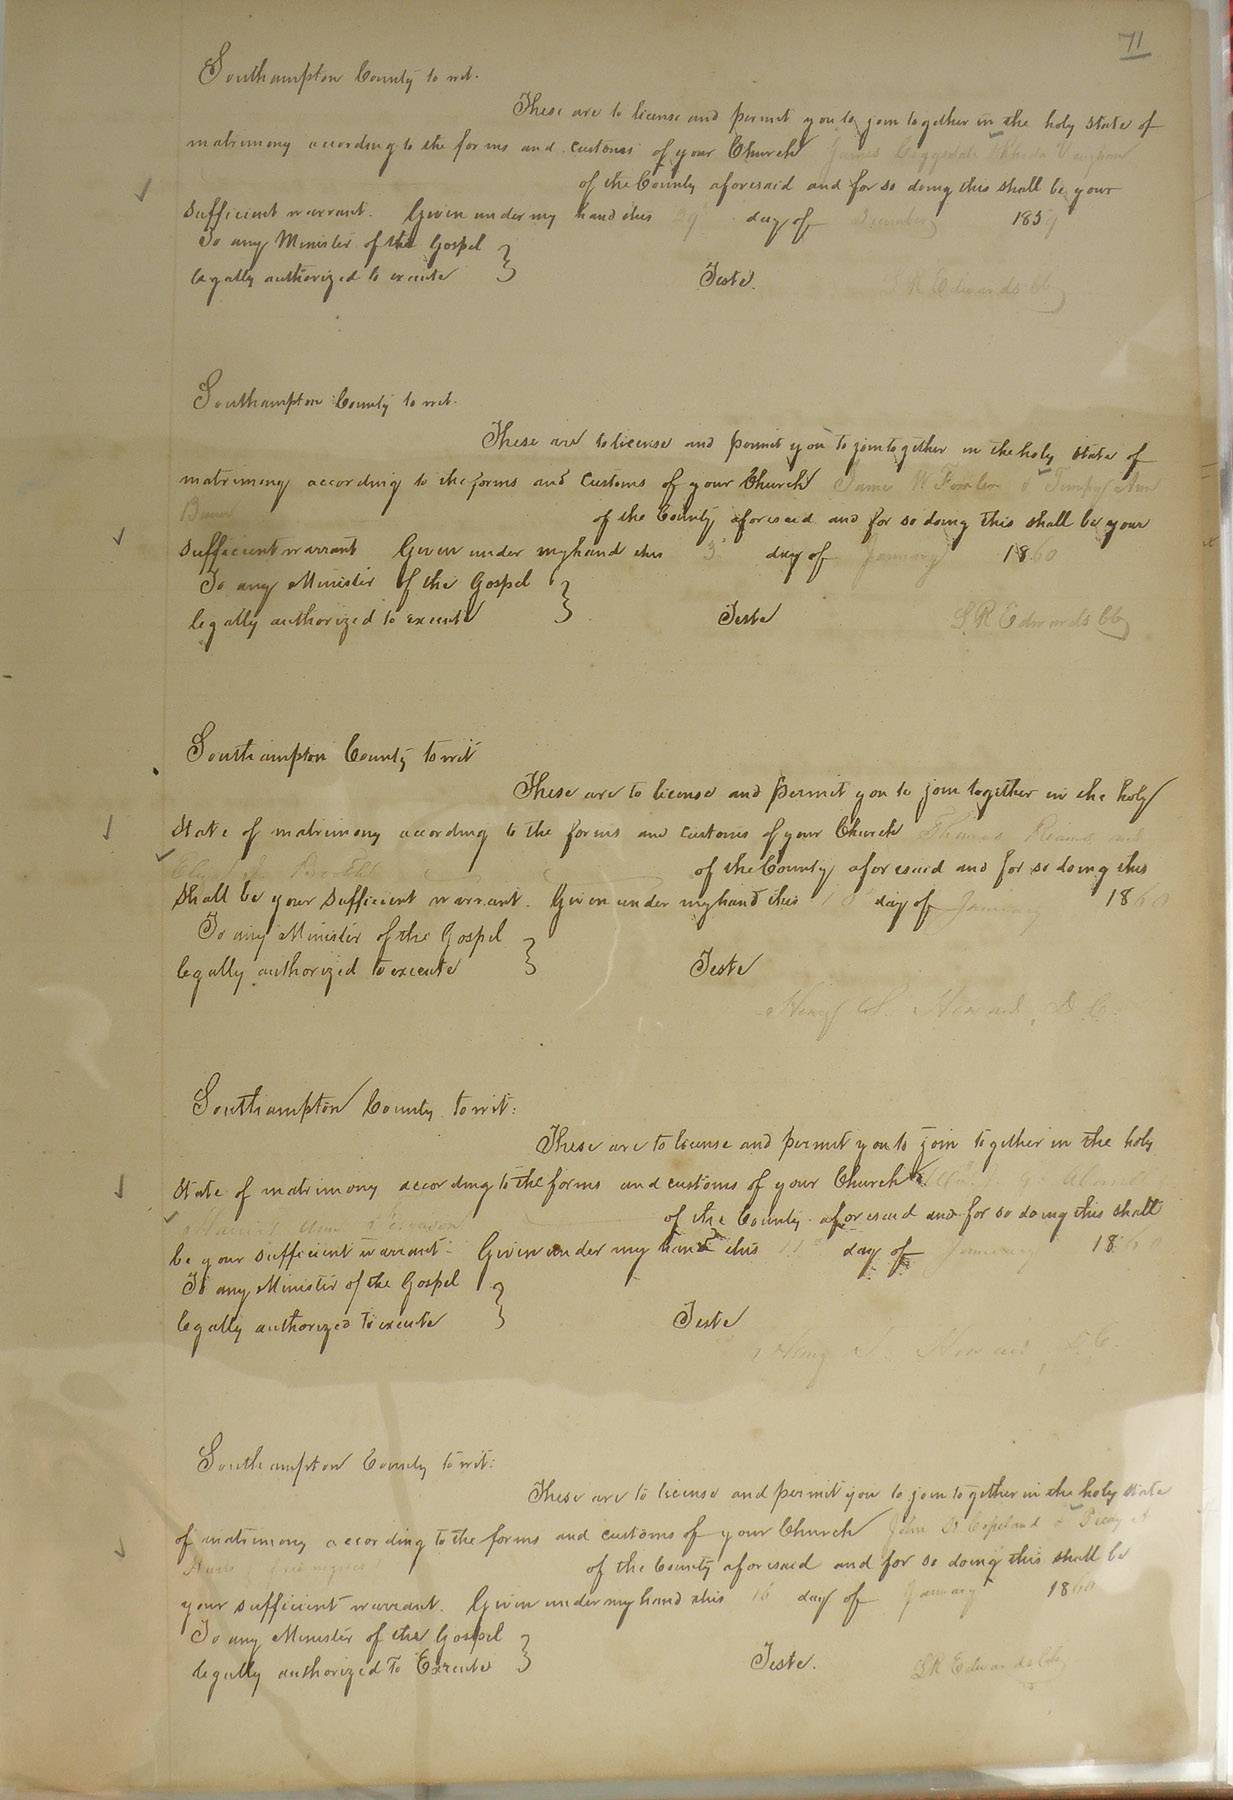 71
Southampton County to wit.
These are to license and permit you to join together in the holy state of
matrimony according to the forms and customs of your Church James
of the County aforesaid and for so doing this shall be your
sufficient warrant. Given under my hand this 29 day of December 1859
To any Minister of the Gospel
legally authorized to execute
Teste.
R Edwards Clk
Southampton County to wit.
These are to license and permit you to join together in the holy state of
matrimony according to the forms and customs of your Church James W & Ann
of the County aforesaid and for so doing this shall be your
sufficient warrant Given under my hand this 3 day of January 1860
To any Minister of the Gospel
legally authorized to execute
Teste
L R Edwards Clk
Southampton County to wit
These are to license and permit you to join together in the holy
state of matrimony according to the forms and customs of your Church Thomas and
of the County aforesaid and for so doing this
shall be your sufficient warrant. Given under my hand this day of January 1860
To any Minister of the Gospel
legally authorized to execute
Teste
Howard, D. C.
Southampton County to wit:
These are to license and permit you to join together in the holy
state of matrimony according to the forms and customs of your Church
Ann of the County aforesaid and for so doing this shall
be your sufficient warrant. Given under my hand this 11 day of January 1860
To any Minister of the Gospel
legally authorized to execute
Teste
Howard, D. C.
Southampton County to wit:
These are to license and permit you to join together in the holy state
of matrimony according to the forms and customs of your Church John Copeland &
of the County aforesaid and for so doing this shall be
your sufficient warrant. Given under my hand this 16 day of January 1860
To any Minister of the Gospel
legally authorized To Execute
Teste.
L R Edwards Clk